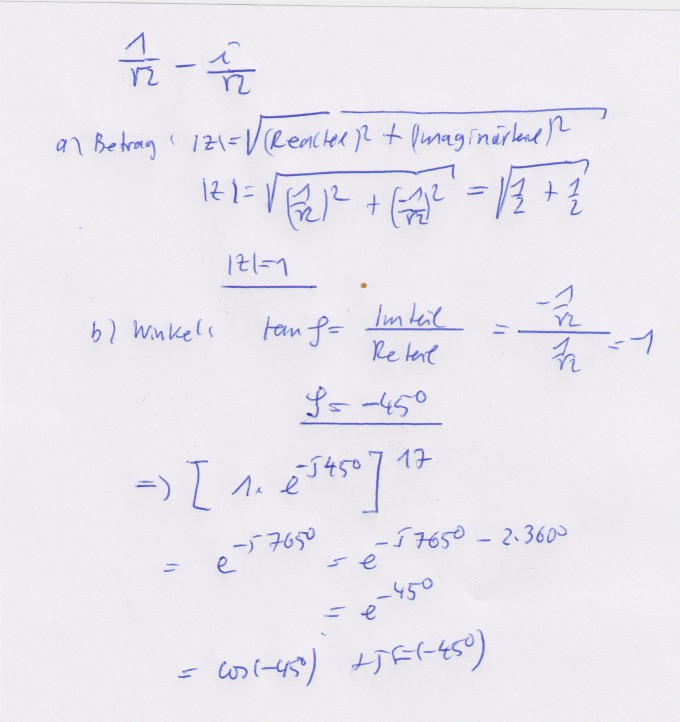 1/√2 - i/√2
a) Betrag: |z| = √((Realteil)² + (Imaginärteil)²)
|z| = √((1/√2)² + (-1/√2)²) = √(1/2 + 1/2)
|z| = 1
b) Winkel: tan φ = Imteil/Reteil = (-1/√2)/(1/√2) = -1
φ = -45°
=> [1 · e^(-j45°)]^17
= e^(-j765°) = e^(-j765° - 2·360°)
= e^(-45°)
= cos(-45°) + j (-45°)